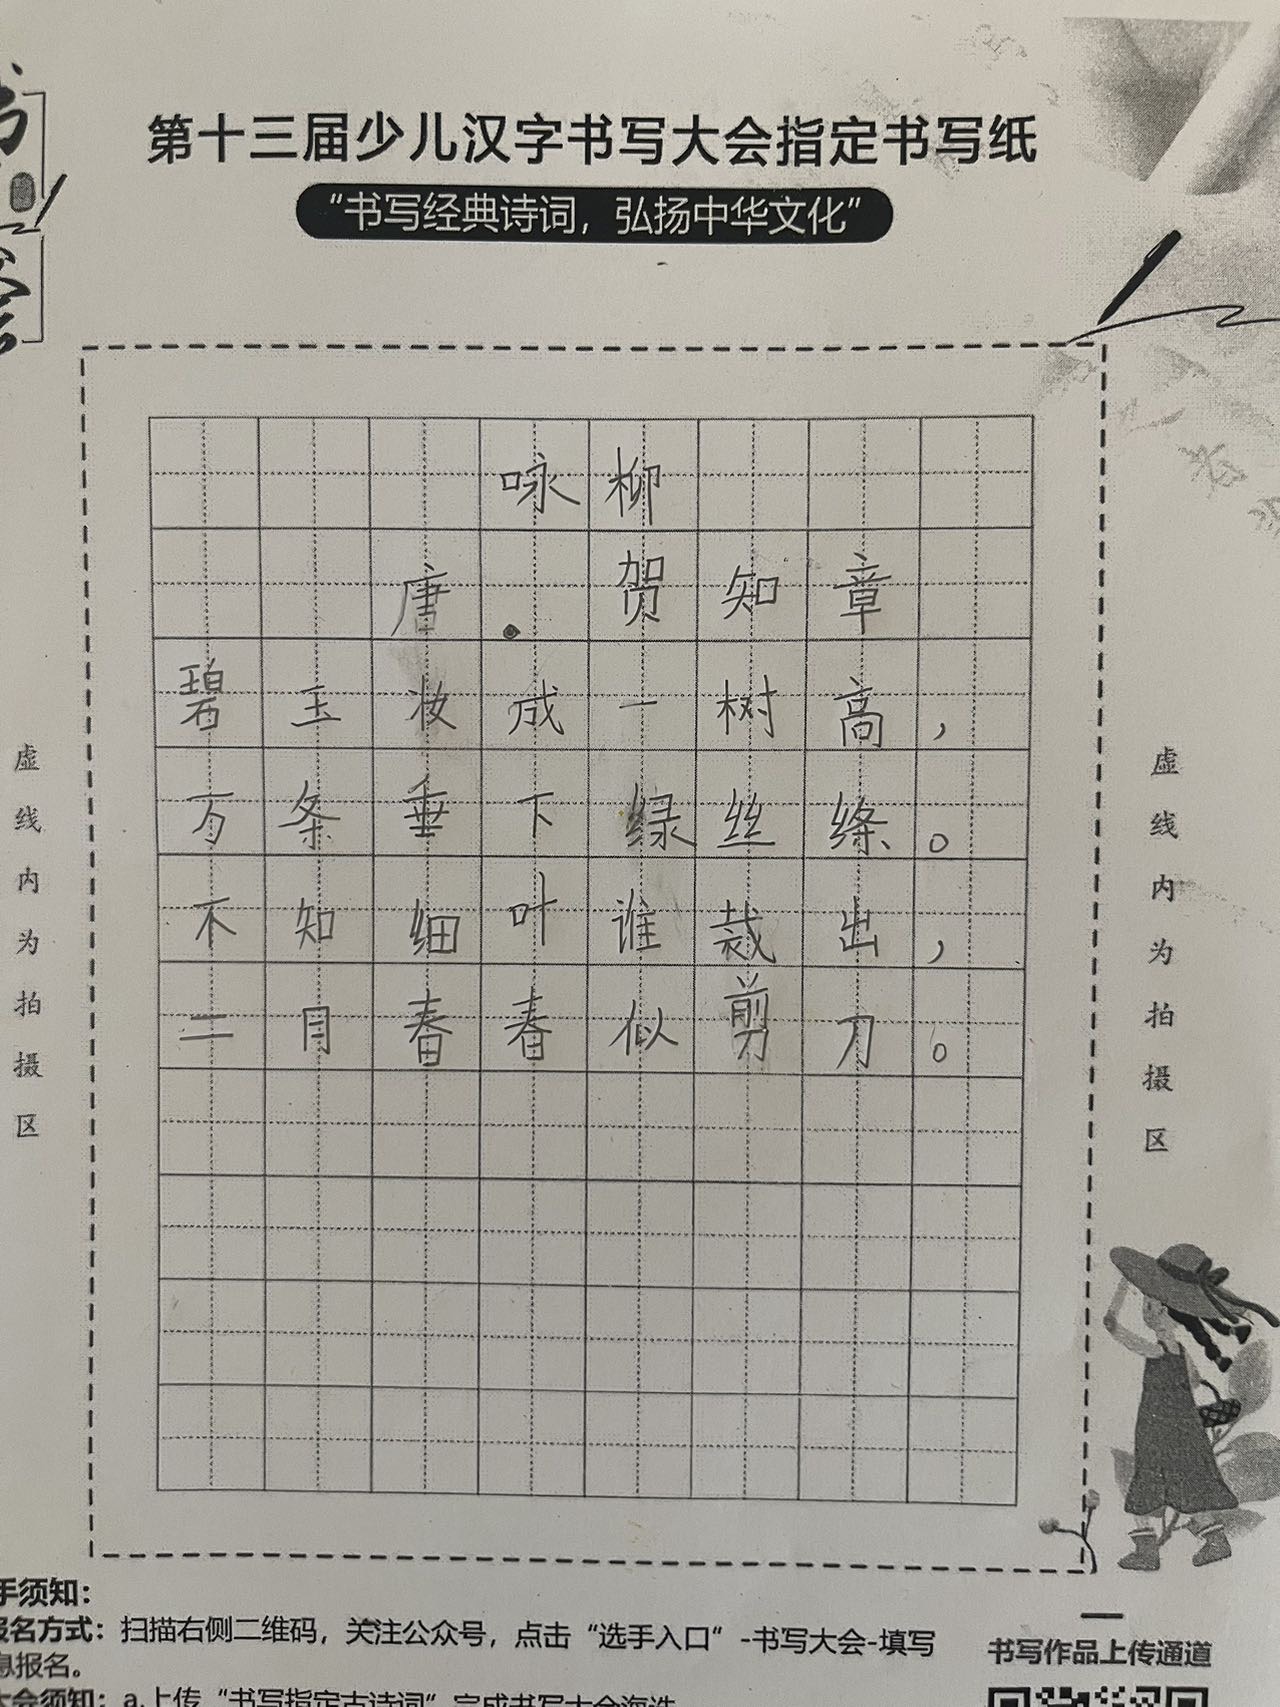 第十三届少儿汉字书写大会指定书写纸
“书写经典诗词，弘扬中华文化”
咏柳
唐.贺知章
碧玉妆成一树高，
万条垂下绿丝绦。
不知细叶谁裁出，
二月春春似剪刀。
虚线内为拍摄区
虚线内为拍摄区
手须知：
报名方式：扫描右侧二维码，关注公众号，点击“选手入口”-书写大会-填写
息报名。
大会须知：a.上传“书写指定古诗词”完成书写大会海选
书写作品上传通道